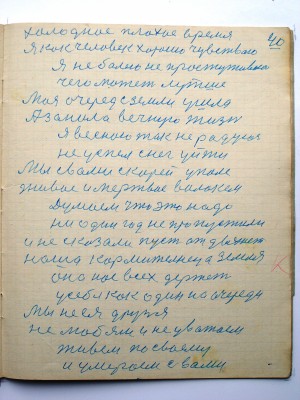 40
холодное плохое время
Я как человек хорошо чувствваю
Я не болно не простуживаюс
чего может лутше
Моя очеред с земли ушла
А зашла вечную жизн
Я весною так не радуюся
не успел снег уйти
Мы с вами скорей у поле
живое и мертвое волокем
Думаем что это надо
ни один год не пропустили
и не сказали пуст отдвяхнет
наша кормителница Земля
она нас всех держет
у себя как один на очереди
Мы не ея друзя
не любям и не уважаем
живем по своему
и умераем с вами